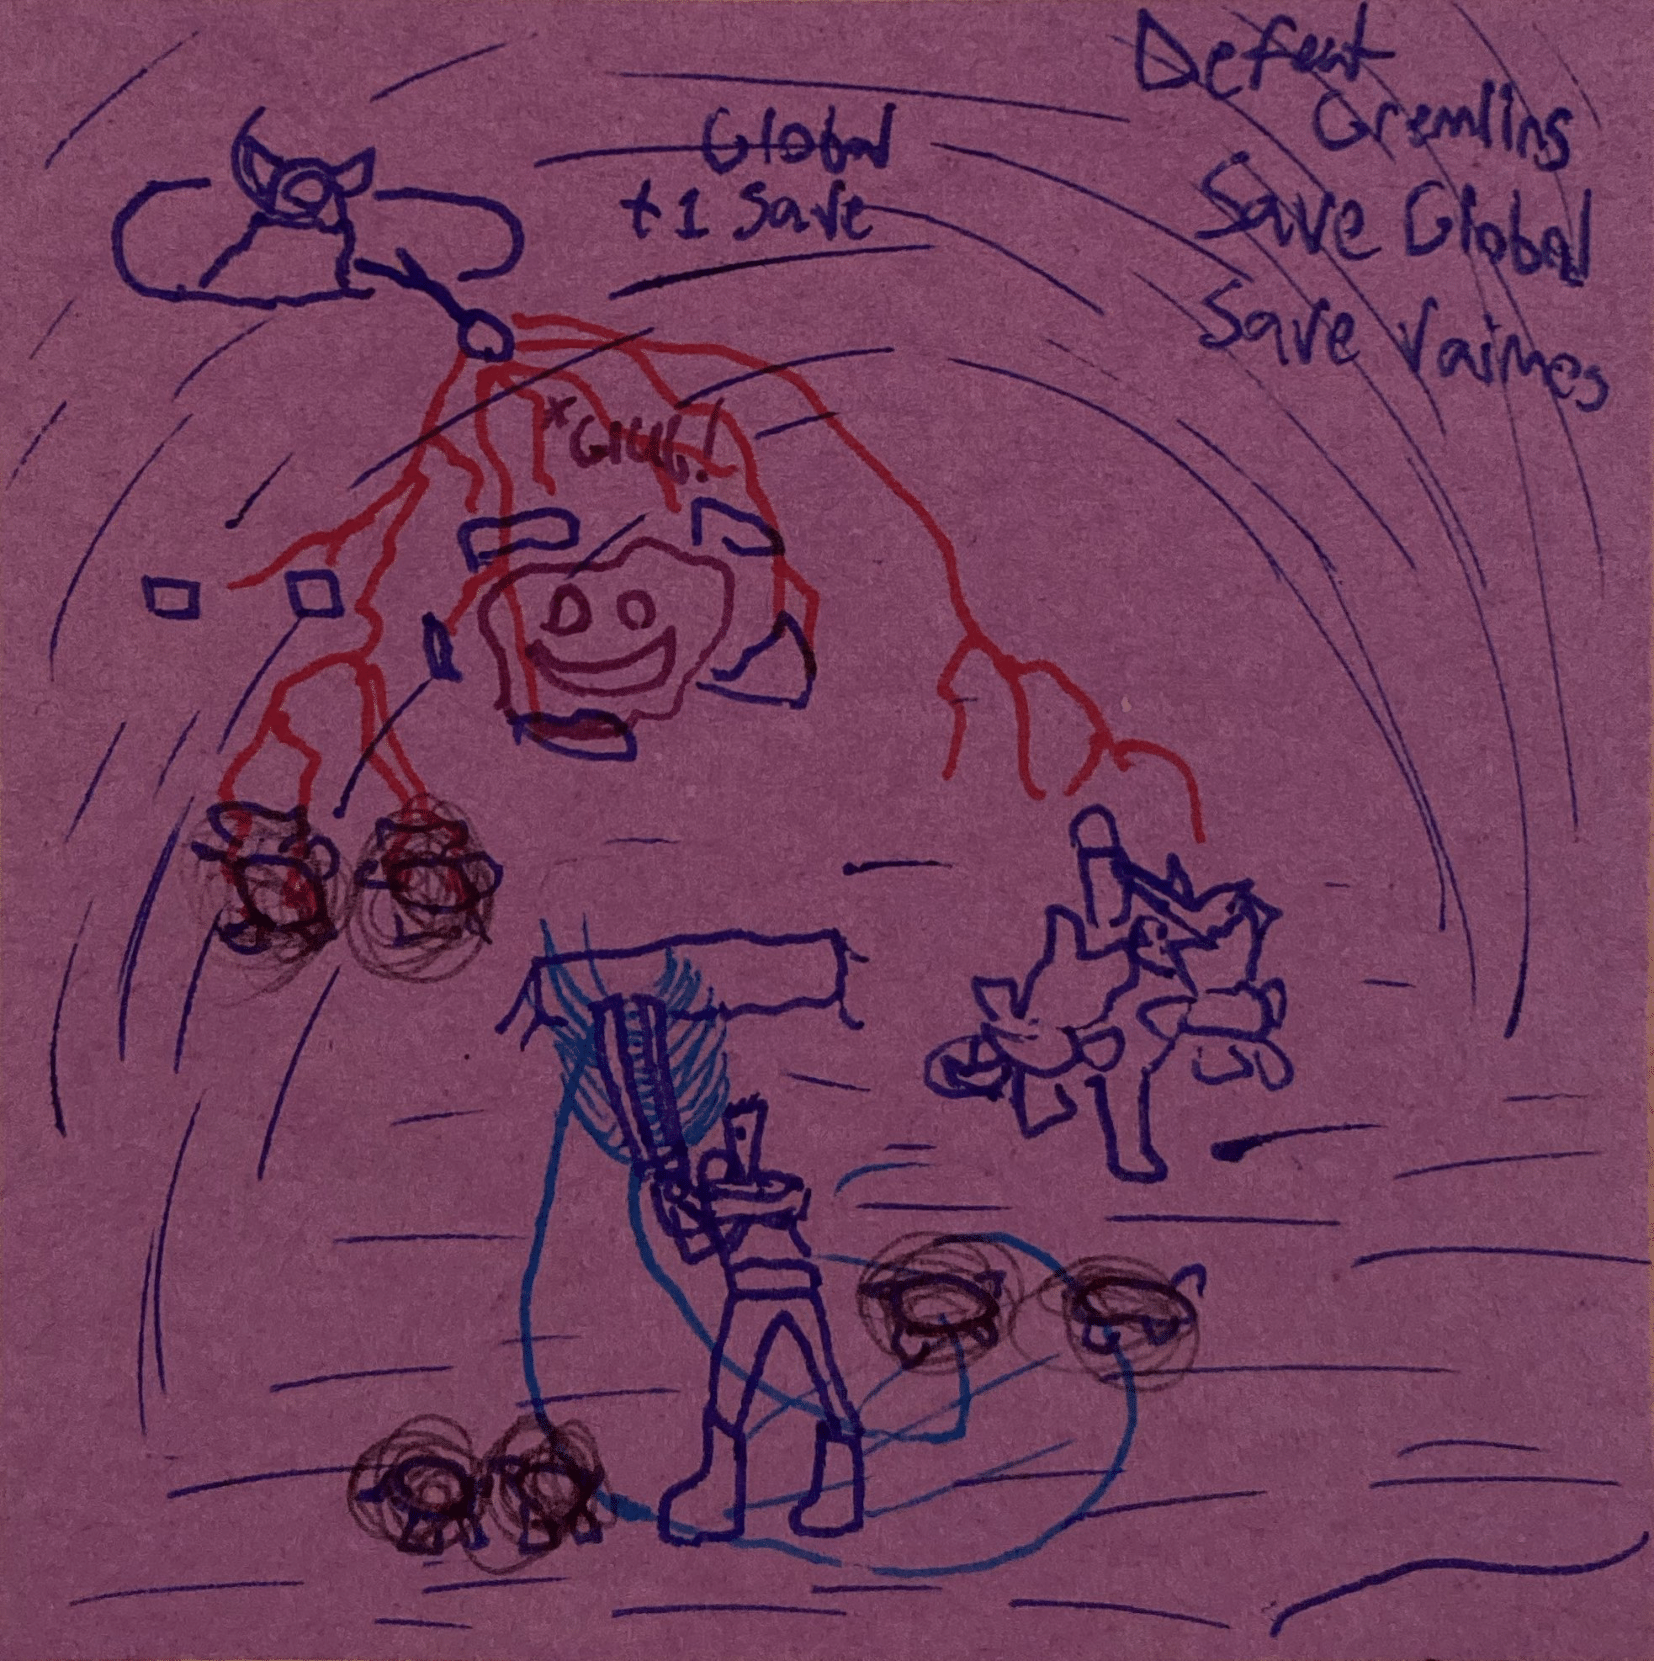 Defeat
Gremlins
Save Global
Save Vaimes
Global
+1 Save
*GlUG!